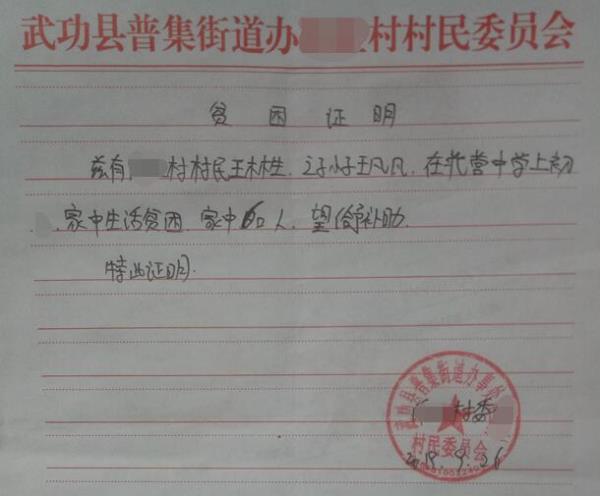 武功县普集街道办 村村民委员会
贫困证明
兹有 村村民王林生 之子王凡凡 在代营中学上初
家中生活贫困 家中 口人 望给予补助
特此证明
武功县普集街道办事处
村委
村民委员会
9.26